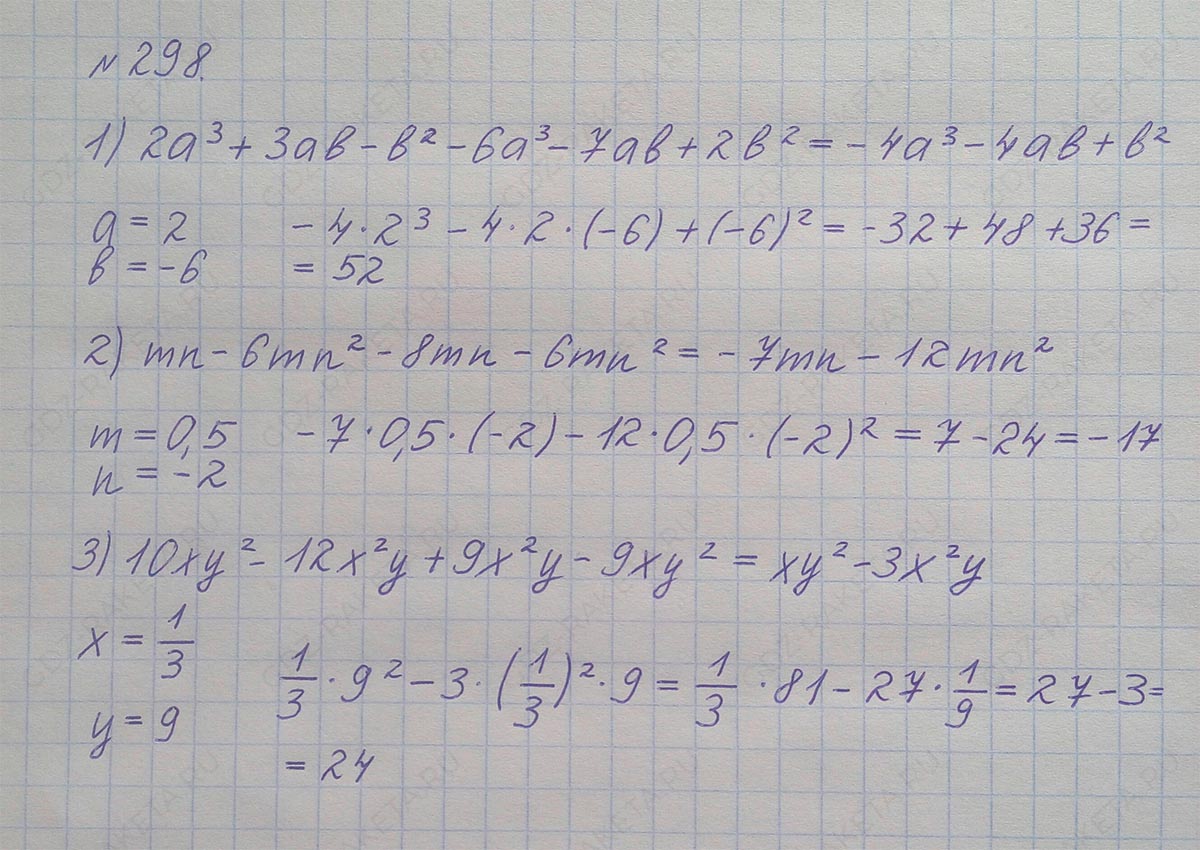 № 298.
1) 2a³ + 3ab - b² - 6a³ - 7ab + 2b² = - 4a³ - 4ab + b²
a = 2 - 4 · 2³ - 4 · 2 · (-6) + (-6)² = -32 + 48 + 36 =
b = -6 = 52
2) mn - 6mn² - 8mn - 6mn² = - 7mn - 12mn²
m = 0,5 - 7 · 0,5 · (-2) - 12 · 0,5 · (-2)² = 7 - 24 = - 17
n = - 2
3) 10xy² - 12x²y + 9x²y - 9xy² = xy² - 3x²y
x = 1/3
1/3 · 9² - 3 · (1/3)² · 9 = 1/3 · 81 - 27 · 1/9 = 27 - 3 =
y = 9
= 24
GDZ-RAKETA.RU